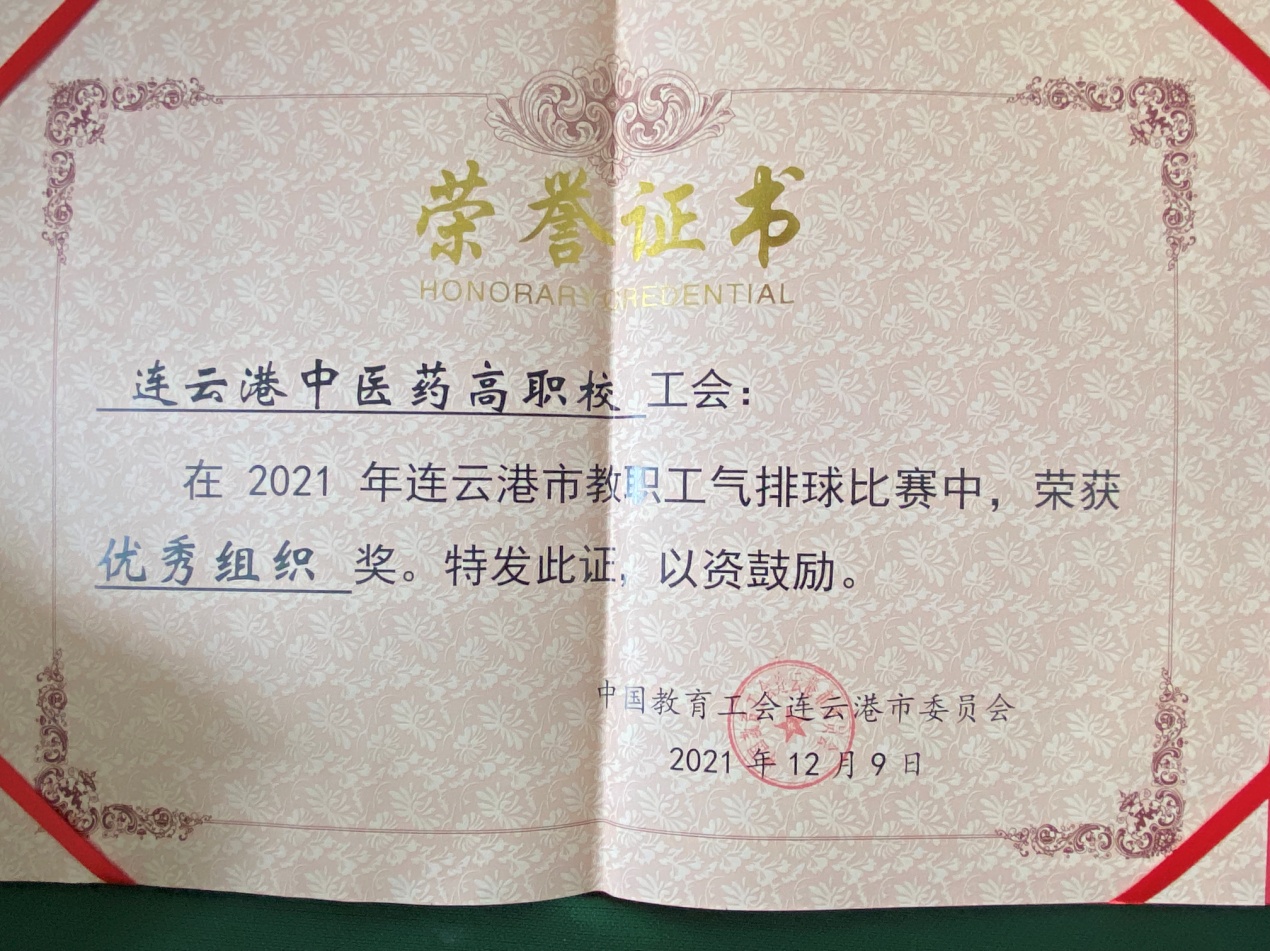 荣誉证书
HONORARY CREDENTIAL
连云港中医药高职校 工会：
在 2021 年连云港市教职工气排球比赛中，荣获
优秀组织 奖。特发此证，以资鼓励。
中国教育工会连云港市委员会
2021 年 12 月 9 日